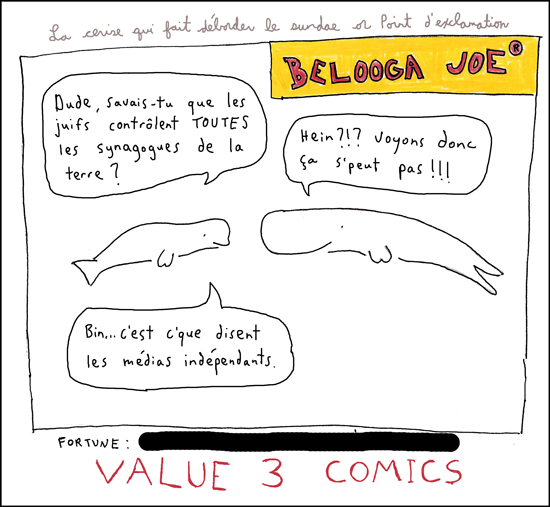 La cerise qui fait déborder le sundae or Point d'exclamation
BELOOGA JOE®
Dude, savais-tu que les
juifs contrôlent TOUTES
les synagogues de la
terre?
Hein?!? Voyons donc
ça s'peut pas!!!
Bin...c'est c'que disent
les médias indépendants.
FORTUNE:
VALUE 3 COMICS